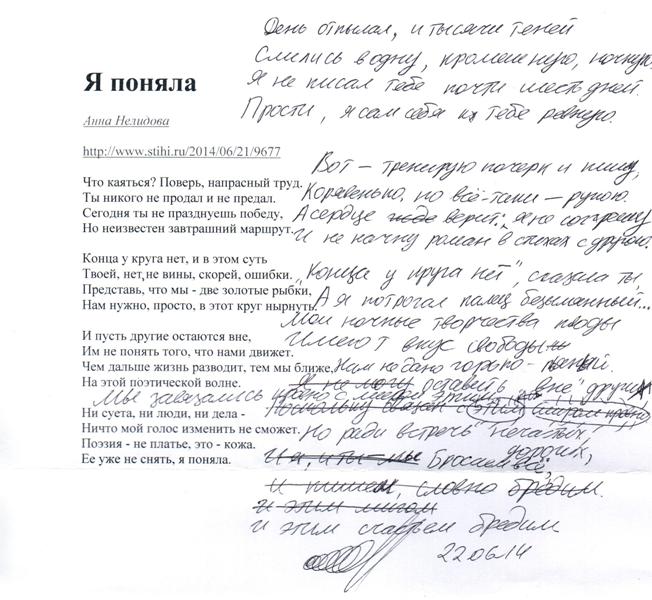 Я поняла
Анна Нелидова
http://www.stihi.ru/2014/06/21/9677
Что каяться? Поверь, напрасный труд.
Ты никого не продал и не предал.
Сегодня ты не празднуешь победу,
Но неизвестен завтрашний маршрут.
Конца у круга нет, и в этом суть
Твоей, нет,не вины, скорей, ошибки.
Представь, что мы - две золотые рыбки,
Нам нужно, просто, в этот круг нырнуть.
И пусть другие остаются вне,
Им не понять того, что нами движет.
Чем дальше жизнь разводит, тем мы ближе,
На этой поэтической волне.
Ни суета, ни люди, ни дела -
Ничто мой голос изменить не сможет.
Поэзия - не платье, это - кожа.
Ее уже не снять, я поняла.
День отпылал, и тысячи теней
Слились в одну, кромешную, ночную.
Я не писал тебе почти шесть дней.
Прости, я сам себя к тебе ревную.
Вот – тренирую почерк и пишу,
Корявенько, но всё-таки – рукою.
А сердце верит: я не согрешу
И не начну роман в стихах с другою.
"Конца у круга нет", сказала ты,
А я потрогал палец безымянный...
Мои ночные творчества плоды
Имеют вкус свободы
Нам надо горько-
Я не могу оставить "вне" других
Мы завязались с этим
Но ради встреч дорогих,
И я, и ты – мы Бросаем всё,
и пишем, словно бредим.
и этим мигом
и этим счастьем бредим
22.06.14